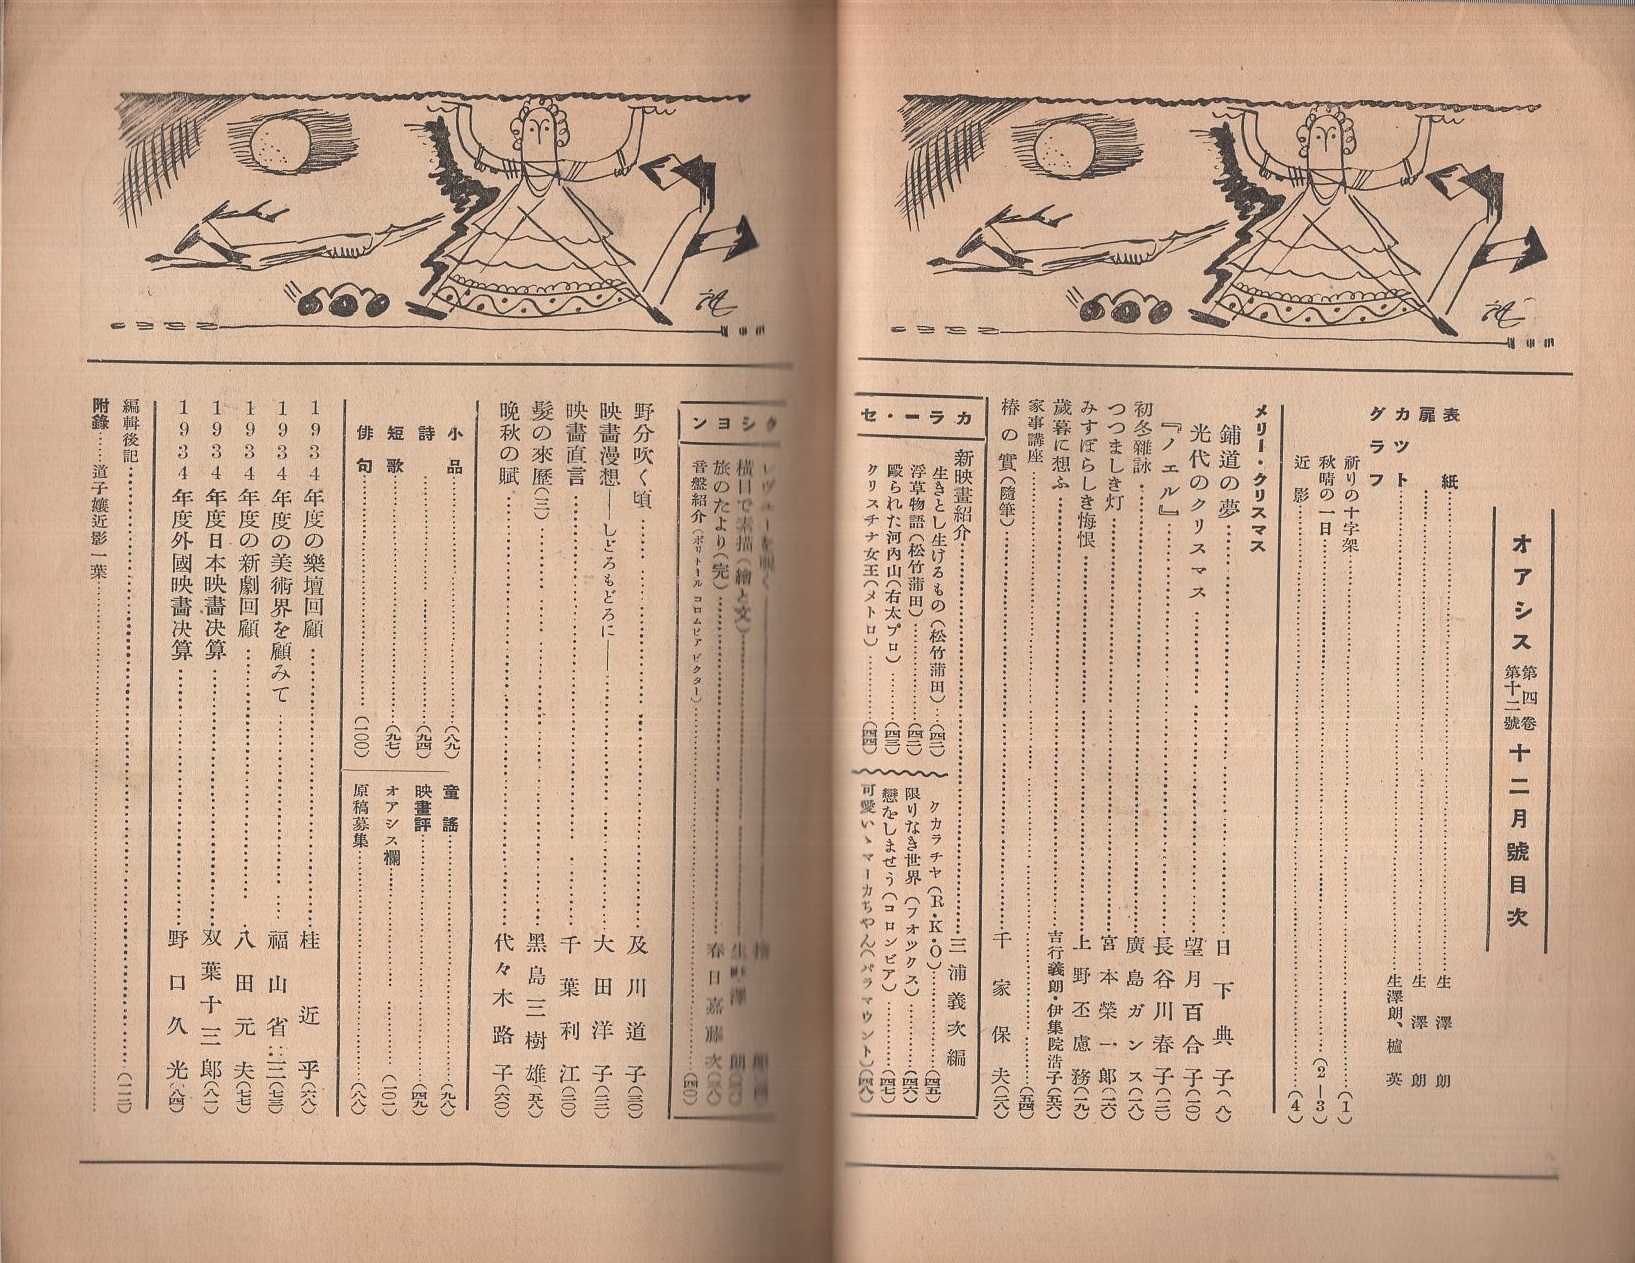 オアシス 第四卷 第十二號 十二月號目次
表紙……生澤朗
扉……生澤朗
カット……生澤朗、櫨英
グラフ
祈りの十字架……(1)
秋晴の一日……(2―3)
近影……(4)
メリー・クリスマス
鋪道の夢……日下典子(八)
光代のクリスマス……望月百合子(一〇)
『ノエル』……長谷川春子(一三)
初冬雜詠……廣島ガンス(一八)
つつましき灯……宮本榮一郎(一六)
みすぼらしき悔恨……上野丕慮務(一九)
歲暮に想ふ……吉行義朗・伊集院浩子(五六)
家事講座……(五四)
椿の實(隨筆)……千家保夫(二八)
カラー・セクション
新映畫紹介……三浦義次編
生きとし生けるもの(松竹蒲田)……(四二)
浮草物語(松竹蒲田)……(四二)
毆られた河內山(右太プロ)……(四三)
クリスチナ女王(メトロ)……(四四)
クカラチヤ(R・K・O)……(四五)
限りなき世界(フォックス)……(四六)
戀をしませう(コロンビア)……(四七)
可愛いゝマーカちゃん(パラマウント)……(四八)
レヴューを覗く
橫目で素描(繪と文)……生澤朗
旅のたより(完)……春日嘉藤次(三八)
音盤紹介(ポリドール コロムビア ビクター)……(四〇)
野分吹く頃……及川道子(三〇)
映畫漫想――しどろもどろに――……大田洋子(三二)
映畫直言……千葉利江(三〇)
髮の來歷(三)……黑島三樹雄(五八)
晚秋の賦……代々木路子(六〇)
小品……(八九)
詩……(九四)
短歌……(九七)
俳句……(一〇〇)
童謠……(九八)
映畫評……(四九)
オアシス欄……(一〇一)
原稿募集……(八八)
1934年度の樂壇回顧……桂近乎(六八)
1934年度の美術界を顧みて……福山省三(七三)
1934年度の新劇回顧……八田元夫(七七)
1934年度日本映畫決算……双葉十三郎(八一)
1934年度外國映畫決算……野口久光(八四)
編輯後記……(一一二)
附錄……道子孃近影一葉